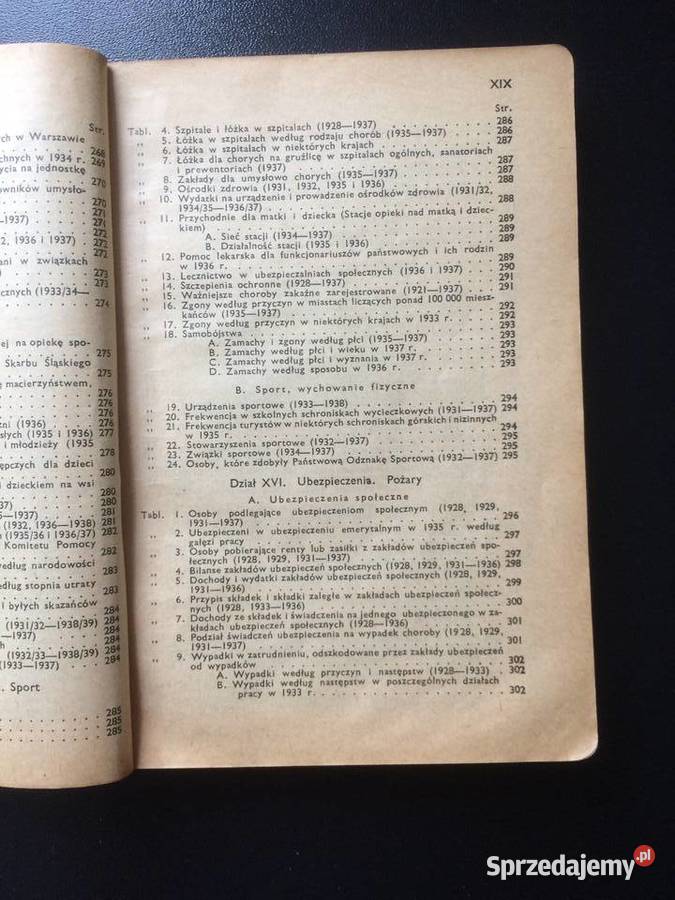 Str.
ch w Warszawie
. . . . 268
chnych w 1934 r. 269
ycia na jednostkę
. . . . 270
owników umysło-
. . . . 270
. . . . 271
—1937) . 271
. . . . 272
2, 1936 i 1937) . 272
. . . . 272
ani w związkach
) . . . . 273
. . . . 273
cznych (1933/34—
. . . . 274
ej na opiekę spo-
. . . . 275
Skarbu Śląskiego
. . . . 275
ę macierzyństwem,
. . . . 276
. . . . 276
. . . . 276
żni (1936) . . 276
słych (1935 i 1936) 277
i młodzieży (1935
. . . . 278
ępczych dla dzieci
. . . . 280
i dzieckiem na wsi
. . . . 280
37) . . . . 280
—1937) . . . 281
(1932, 1936—1938) 281
h (1935/36 i 1936/37) 282
Komitetu Pomocy
. . . . 282
według narodowości
. . . . 283
według stopnia utraty
. . . . 283
i byłych skazańców
. . . . 284
(1931/32—1938/39) 284
—1937) . . . 284
ch . . . . 284
(1932/33—1938/39) 284
(1933—1937) . . 284
. Sport
. . . . 285
. . . . 285
. . . . 285
XIX
Str.
Tabl. 4. Szpitale i łóżka w szpitalach (1928—1937) . . . . 286
„ 5. Łóżka w szpitalach według rodzaju chorób (1935—1937) . . . . 286
„ 6. Łóżka w szpitalach w niektórych krajach . . . . 287
„ 7. Łóżka dla chorych na gruźlicę w szpitalach ogólnych, sanatoriach
i prewentoriach (1937) . . . . 287
„ 8. Zakłady dla umysłowo chorych (1935—1937) . . . . 287
„ 9. Ośrodki zdrowia (1931, 1932, 1935 i 1936) . . . . 288
„ 10. Wydatki na urządzenie i prowadzenie ośrodków zdrowia (1931/32,
1934/35—1936/37) . . . . 288
„ 11. Przychodnie dla matki i dziecka (Stacje opieki nad matką i dziec-
kiem) . . . . 289
A. Sieć stacji (1934—1937) . . . . 289
B. Działalność stacji (1935 i 1936) . . . . 289
„ 12. Pomoc lekarska dla funkcjonariuszów państwowych i ich rodzin
w 1936 r. . . . . 289
„ 13. Lecznictwo w ubezpieczalniach społecznych (1936 i 1937) . . . . 290
„ 14. Szczepienia ochronne (1928—1937) . . . . 291
„ 15. Ważniejsze choroby zakaźne zarejestrowane (1921—1937) . . . . 291
„ 16. Zgony według przyczyn w miastach liczących ponad 100 000 miesz-
kańców (1935—1937) . . . . 292
„ 17. Zgony według przyczyn w niektórych krajach w 1933 r. . . . . 292
„ 18. Samobójstwa . . . . 293
A. Zamachy i zgony według płci (1935—1937) . . . . 293
B. Zamachy według płci i wieku w 1937 r. . . . . 293
C. Zamachy według płci i wyznania w 1937 r. . . . . 293
D. Zamachy według sposobu w 1936 r. . . . . 293
B. Sport, wychowanie fizyczne
„ 19. Urządzenia sportowe (1933—1938) . . . . 294
„ 20. Frekwencja w szkolnych schroniskach wycieczkowych (1931—1937) 294
„ 21. Frekwencja turystów w niektórych schroniskach górskich i nizinnych
w 1935 r. . . . . 294
„ 22. Stowarzyszenia sportowe (1932—1937) . . . . 295
„ 23. Związki sportowe (1934—1937) . . . . 295
„ 24. Osoby, które zdobyły Państwową Odznakę Sportową (1932—1937) 295
Dział XVI. Ubezpieczenia. Pożary
A. Ubezpieczenia społeczne
Tabl. 1. Osoby podlegające ubezpieczeniom społecznym (1928, 1929,
1931—1937) . . . . 296
„ 2. Ubezpieczeni w ubezpieczeniu emerytalnym w 1935 r. według
gałęzi pracy . . . . 297
„ 3. Osoby pobierające renty lub zasiłki z zakładów ubezpieczeń spo-
łecznych (1928, 1929, 1931—1937) . . . . 297
„ 4. Bilanse zakładów ubezpieczeń społecznych (1928, 1929, 1931—1936) 298
„ 5. Dochody i wydatki zakładów ubezpieczeń społecznych (1928, 1929,
1931—1936) . . . . 299
„ 6. Przypis składek i składki zaległe w zakładach ubezpieczeń społecz-
nych (1928, 1933—1936) . . . . 300
„ 7. Dochody ze składek i świadczenia na jednego ubezpieczonego w za-
kładach ubezpieczeń społecznych (1928—1936) . . . . 301
„ 8. Podział świadczeń ubezpieczenia na wypadek choroby (1928, 1929,
1931—1937) . . . . 301
„ 9. Wypadki w zatrudnieniu, odszkodowane przez zakłady ubezpieczeń
od wypadków . . . . 302
A. Wypadki według przyczyn i następstw (1928—1933) . . 302
B. Wypadki według następstw w poszczególnych działach
pracy w 1933 r. . . . . 302
Sprzedajemy.pl